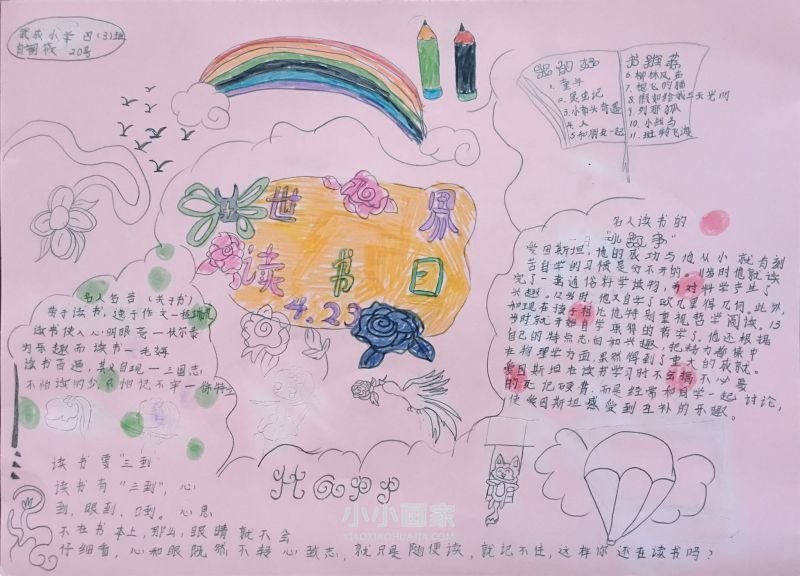 武成小学 四(3)班
20号
世界
读书日
4.23
1. 童年
2. 昆虫记
3. 小布头奇遇
4. 人
5. 和朋友一起
书推荐
6. 柳林风声
7. 会飞的猫
8. 假如给我三天光明
9. 列那狐
10. 小战马
11. 班特飞游
名人读书的
"小故事"
爱因斯坦，他的成功与他从小就有刻
苦自学的习惯是分不开的。11岁时他就读
完了一套通俗科学读物，并对科学产生了
兴趣。12岁时，他又自学了欧几里得几何。此外，
如现在孩子相比他特别重视哲学阅读。13
岁时就开始自学康得的哲学了。他还根据
自己的特点志向和兴趣，把精力都集中
在物理学方面，果然得到了重大的成就。
爱因斯坦在读书学习时不会搞不必要
的死记硬背，而是经常和同学一起讨论，
使爱因斯坦感受到互补的乐趣。
名人名言（关于书）
劳于读书，逸于作文一程端礼
读书使人心明眼亮一伏尔泰
为乐趣而读书一毛姆
读书百遍，其义自现一三国志
不怕读的少只怕记不牢一徐特立
读书要"三到"
读书有"三到"，心
到，眼到，口到。心思
不在书本上，那么，眼睛就不会
仔细看，心和眼既然不专心致志，就只是随便读，就记不住，这样你还在读书吗？
Happ
小小画家
XIAOXIAOHUAJIA.COM